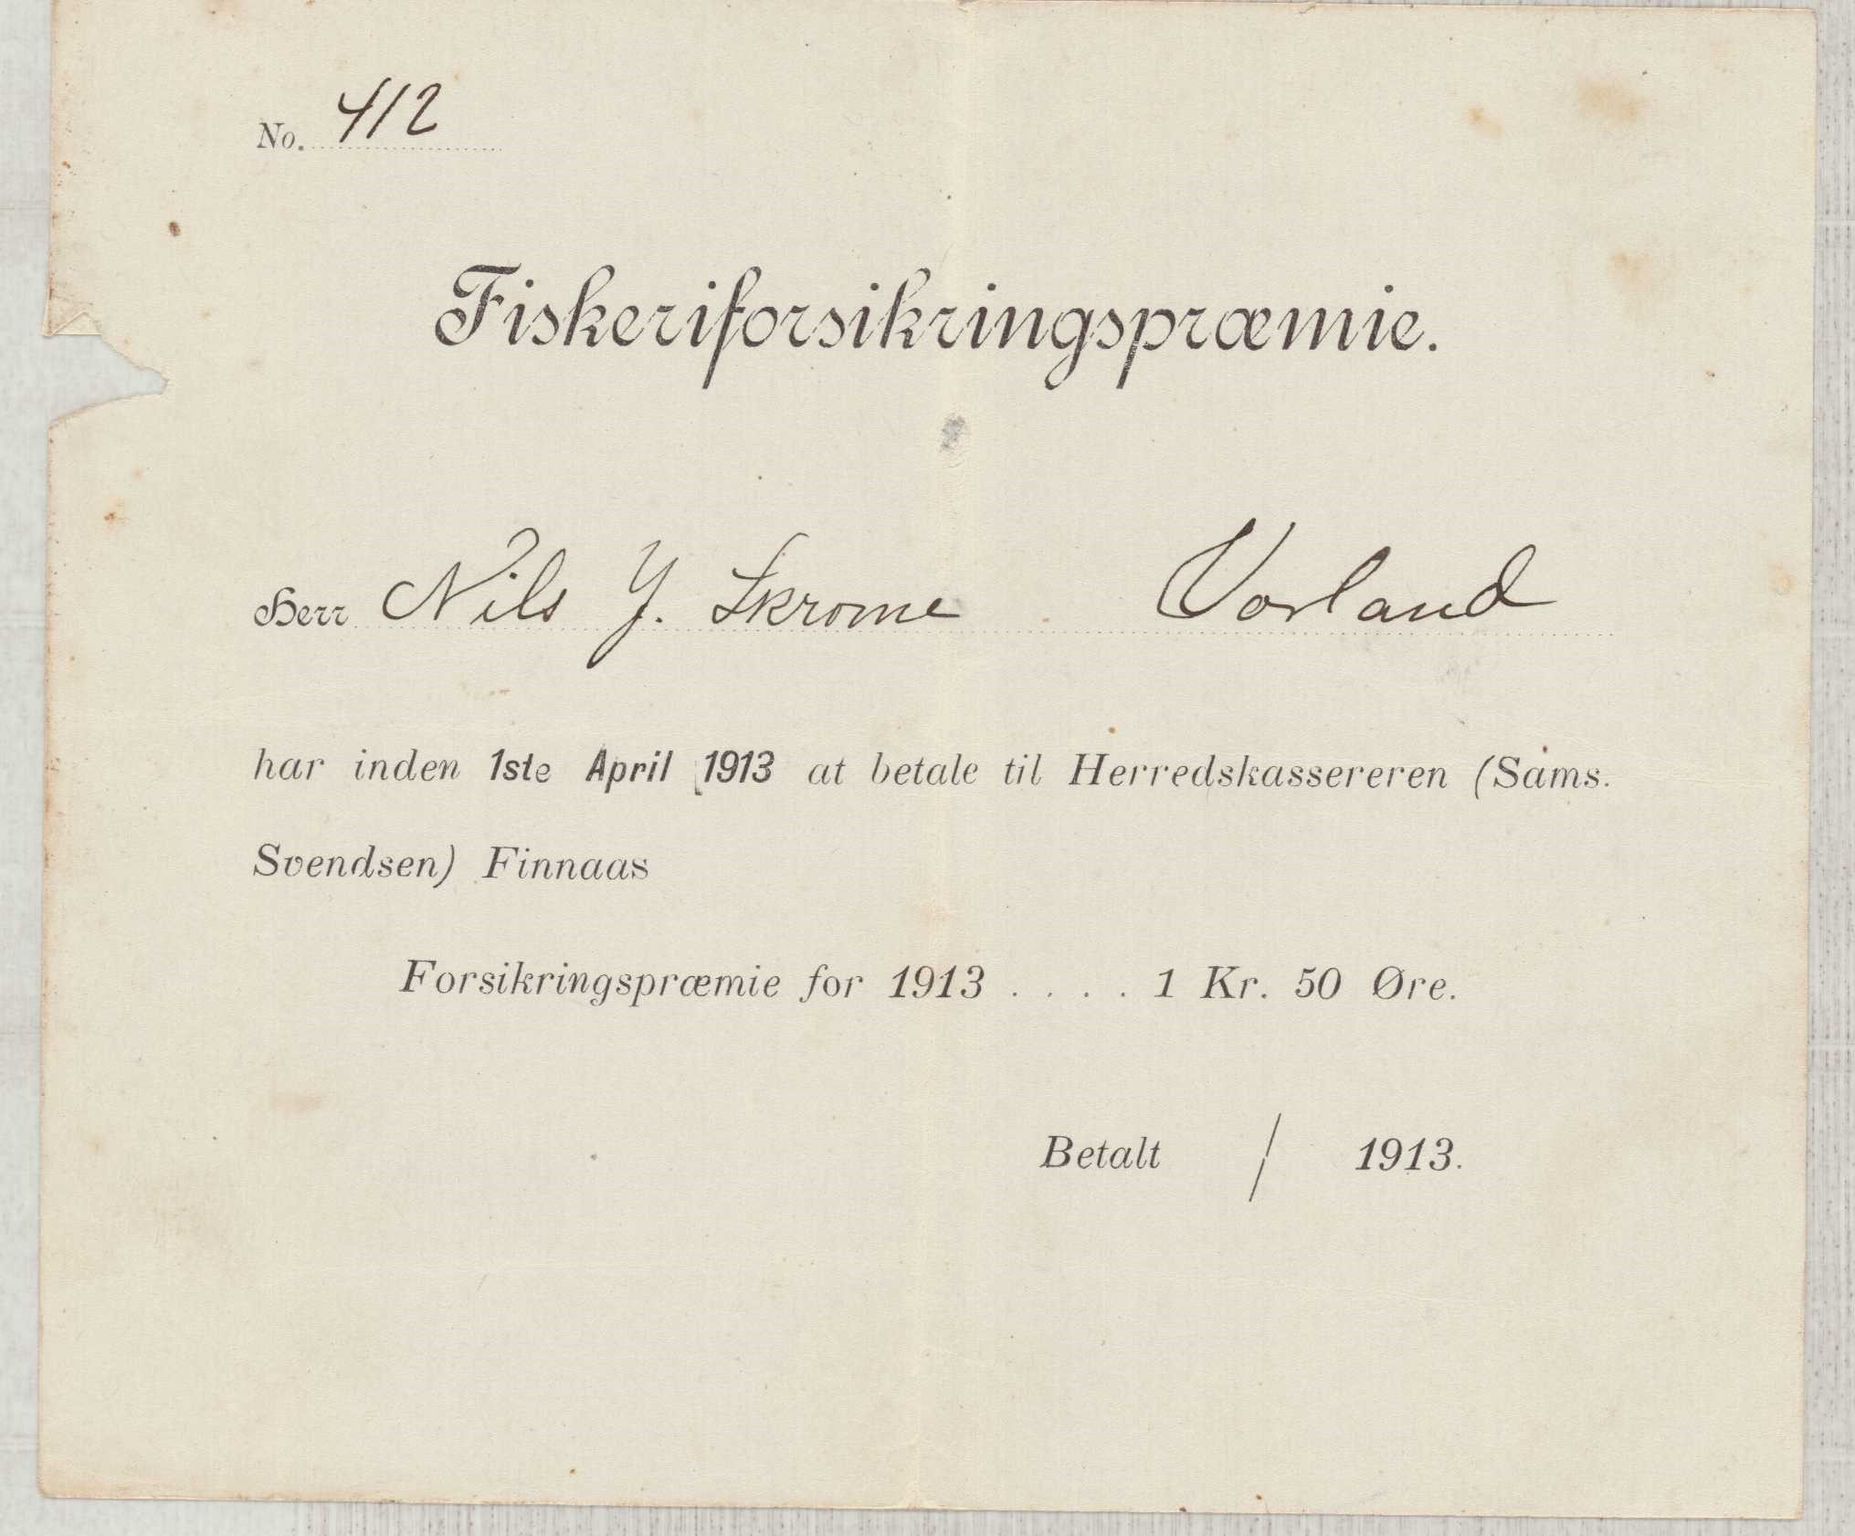 No. 412
Fiskeriforsikringspræmie.
Herr Nils J. Skrome Vorland
har inden 1ste April 1913 at betale til Herredskassereren (Sams.
Svendsen) Finnaas
Forsikringspræmie for 1913 . . . . 1 Kr. 50 Øre.
Betalt / 1913.